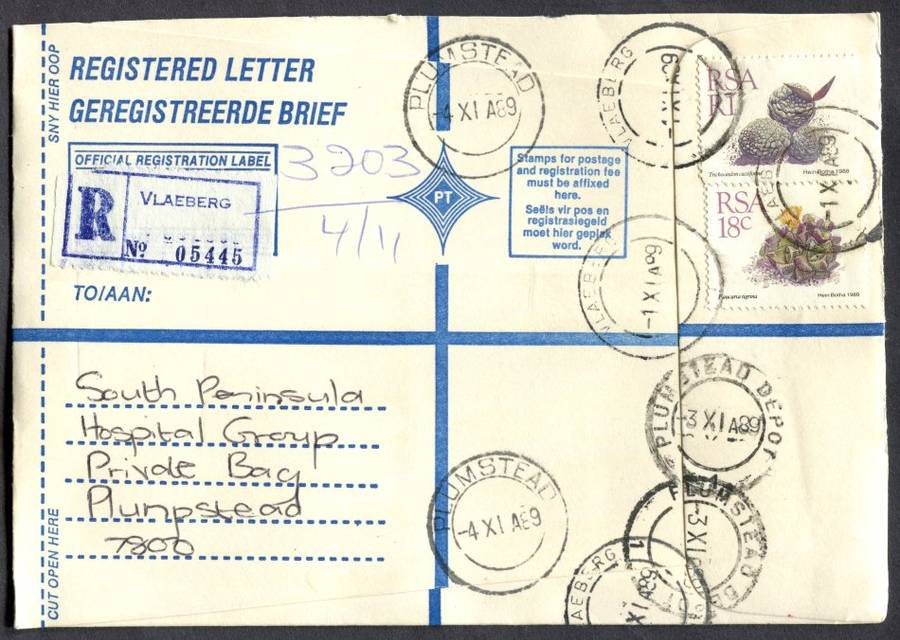 SNY HIER OOP
REGISTERED LETTER
GEREGISTREERDE BRIEF
OFFICIAL REGISTRATION LABEL
R
VLAEBERG
No 05445
3203
4/11
TO/AAN:
PT
Stamps for postage
and registration fee
must be affixed
here.
Seëls vir pos en
registrasiegeld
moet hier geplak
word.
PLUMSTEAD
-4 XI A89
VLAEBERG
-1 XI A89
RSA
R1
Hein Botha 1988
VLAEBERG
-1 X A89
RSA
18c
Hein Botha 1988
VLAEBERG
-1 XI A89
South Peninsula
Hospital Group
Private Bag
Plumpstead
7800
CUT OPEN HERE
PLUMSTEAD DEPOT
-3 XI A89
PLUMSTEAD
-4 XI A89
PLUMSTEAD DE
-3 XI
VLAEBERG
1 XI 89